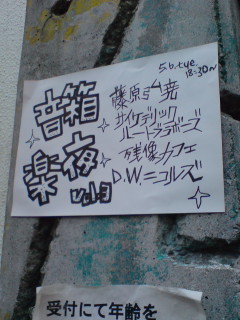 5.6.tue.
18:30~
音箱
楽夜
Vol.3
藤原弓暁
サイケデリック
ハートブラボーズ
残像カフェ
D.W.ニコルズ
受付にて年齢を